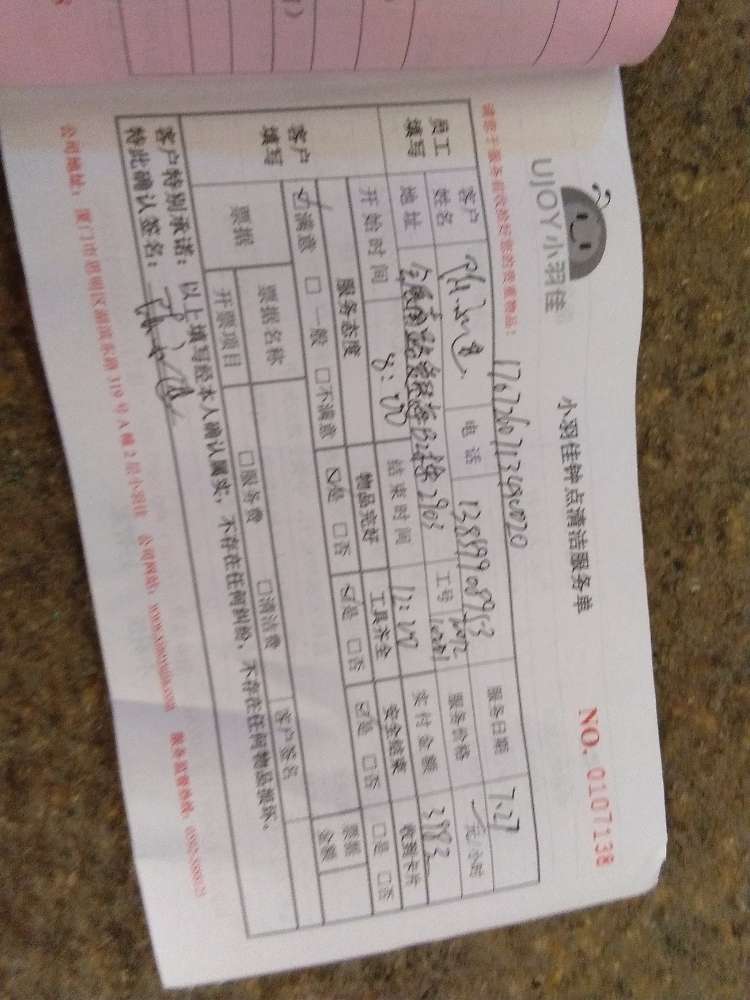 UJOY小羽佳
小羽佳钟点清洁服务单
NO. 0107138
请您于服务前收拾好您的贵重物品!
员工填写
客户姓名
电话
服务日期 7.27
地址
2903
工号
服务价格
元/小时
开始时间 8:00
结束时间 12:00
实付金额
收到卡片 □是 □否
客户填写
服务态度
物品完好
工具齐全
安全结束
☑满意 □一般 □不满意
☑是 □否
☑是 □否
☑是 □否
票据
票据名称
客户签名
票据金额
开票项目
□服务费
□清洁费
客户特别承诺：以上填写经本人确认属实，不存在任何纠纷，不存在任何物品损坏。
特此确认签名：
公司地址：厦门市思明区湖滨东路319号A幢2层小羽佳 公司网址：www.xiaoyujia.com 服务监督热线：